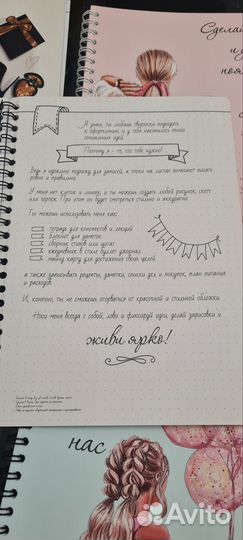 Сделай
и д
поя
Я знаю, ты любишь творчески подходить
к оформлению, и у тебя накопилось много
гениальных идей
Поэтому я - то, что тебе нужно!
Ведь я идеально подхожу для записей, а точки на листах помогают писать
ровно и правильно
У меня нет клеток и линеек, и ты можешь создать любой рисунок, скетч
или чертеж. При этом он будет смотреться стильно и аккуратно
Ты можешь использовать меня как:
тетрадь для конспектов и лекций
блокнот для заметок
сборник стихов или цитат
ежедневник в стиле буллет джорнал
майнд карту для достижения своих целей
а также записывать рецепты, заметки, списки дел и покупок, план питания
и расходов
И, конечно, ты не сможешь оторваться от красочной и стильной обложки
Носи меня всегда с собой, лови и фиксируй идеи, делай зарисовки и
живи ярко!
нас
Avito